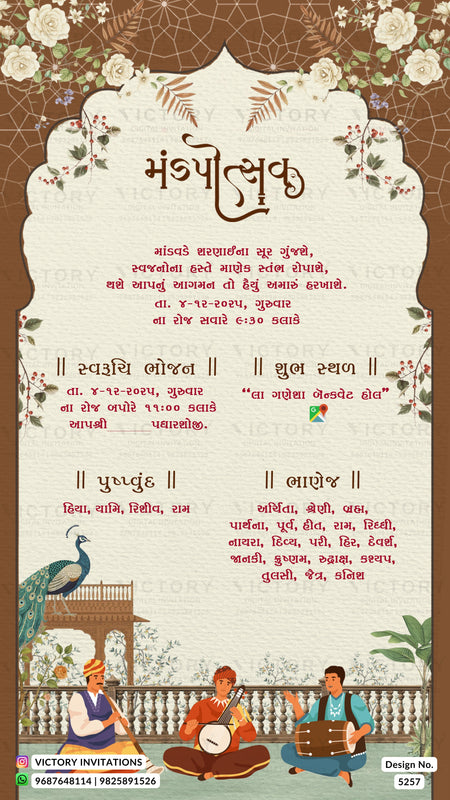 મંડપોત્સવ
માંડવડે શરણાઈના સૂર ગુંજશે,
સ્વજનોના હસ્તે માણેક સ્તંભ રોપાશે,
થશે આપનું આગમન તો હૈયું અમારું હરખાશે.
તા. ૪-૧૨-૨૦૨૫, ગુરુવાર
ના રોજ સવારે ૯:૩૦ કલાકે
|| સ્વરૂચિ ભોજન ||
તા. ૪-૧૨-૨૦૨૫, ગુરુવાર
ના રોજ બપોરે ૧૧:૦૦ કલાકે
આપશ્રી ______ પધારશોજી.
|| શુભ સ્થળ ||
“લા ગણેશા બૅન્કવેટ હોલ”
|| પુષ્પવૃંદ ||
હિયા, યામિ, રિશીવ, રામ
|| ભાણેજ ||
અર્ચિતા, શ્રેણી, બ્રહ્મા,
પાર્થના, પૂર્વ, હીત, રામ, રિધ્ધી,
નાયરા, દિવ્ય, પરી, હિર, દેવર્શ,
જાનકી, ક્રુષ્ણમ, રુદ્રાક્ષ, કશ્યપ,
તુલસી, જૈત્ર, કનિશ
VICTORY INVITATIONS
9687648114 | 9825891526
Design No.
5257